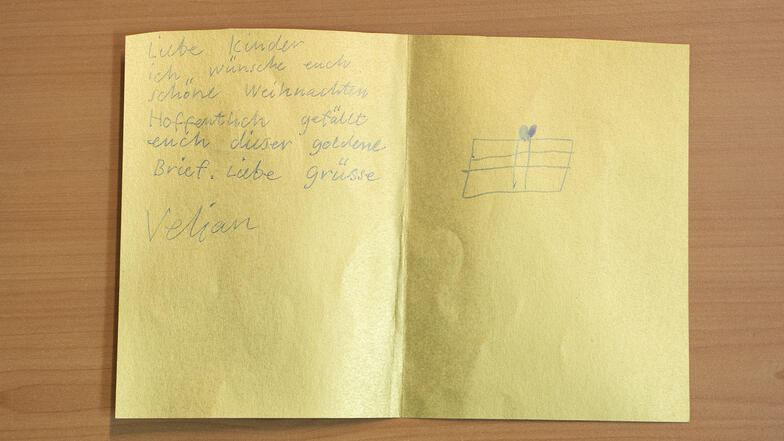 Liebe Kinder
ich wünsche euch
schöne Weihnachten
Hoffentlich gefällt
euch dieser goldene
Brief. Liebe Grüsse
Veljan